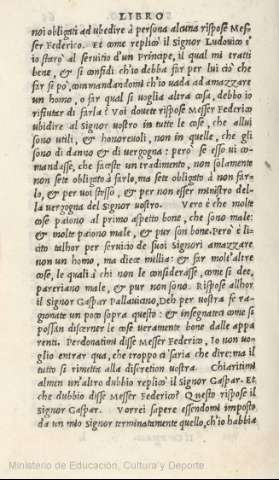 LIBRO
noi obligati ad ubedire à persona alcuna rispose Mes
ser Federico. Et come replicò il Signor Ludouico s'
io starò al seruitio d'un Principe, il qual mi tratti
bene, & si confidi ch'io debba far per lui ciò che
far si pò, commandandomi ch'io uada ad amazzare
un homo, o far qual si uoglia altra cosa, debbo io
rifiutar di farla? Voi douete rispose Messer Federico
ubidire al Signor uostro in tutte le cose, che allui
sono utili, & honoreuoli, non in quelle, che gli
sono di danno & di uergogna: però se esso ui co-
mandasse, che faceste un tradimento, non solamente
non sete obligato à farlo, ma sete obligato à non far-
lo, & per uoi stesso, & per non esser ministro del-
la uergogna del Signor uostro. Vero è che molte
cose paiono al primo aspetto bone, che sono male:
& molte paiono male, & pur son bone. Però è li
cito talhor per seruicio de suoi Signori amazzare
non un homo, ma diece millia: & far molt'altre
cose, le quali à chi non le considerasse, come si dee,
pareriano male, & pur non sono. Rispose alhor
il Signor Gaspar Pallauicino, Deh per uostra fe ra-
gionate un poco sopra questo: & insegnateci come si
possan discerner le cose ueramente bone dalle appa
renti. Perdonatimi disse Messer Federico, Io non uo-
glio entrar qua, che troppo ci saria che dire: ma il
tutto si rimetta alla discretion uostra. Chiaritimi
almen un'altro dubbio replicò il Signor Gaspar. Et
che dubbio disse Messer Federico? Questo rispose il
Signor Gaspar. Vorrei sapere essendomi imposto
da un mio Signor terminatamente quello, ch'io habbia
Ministerio de Educación, Cultura y Deporte